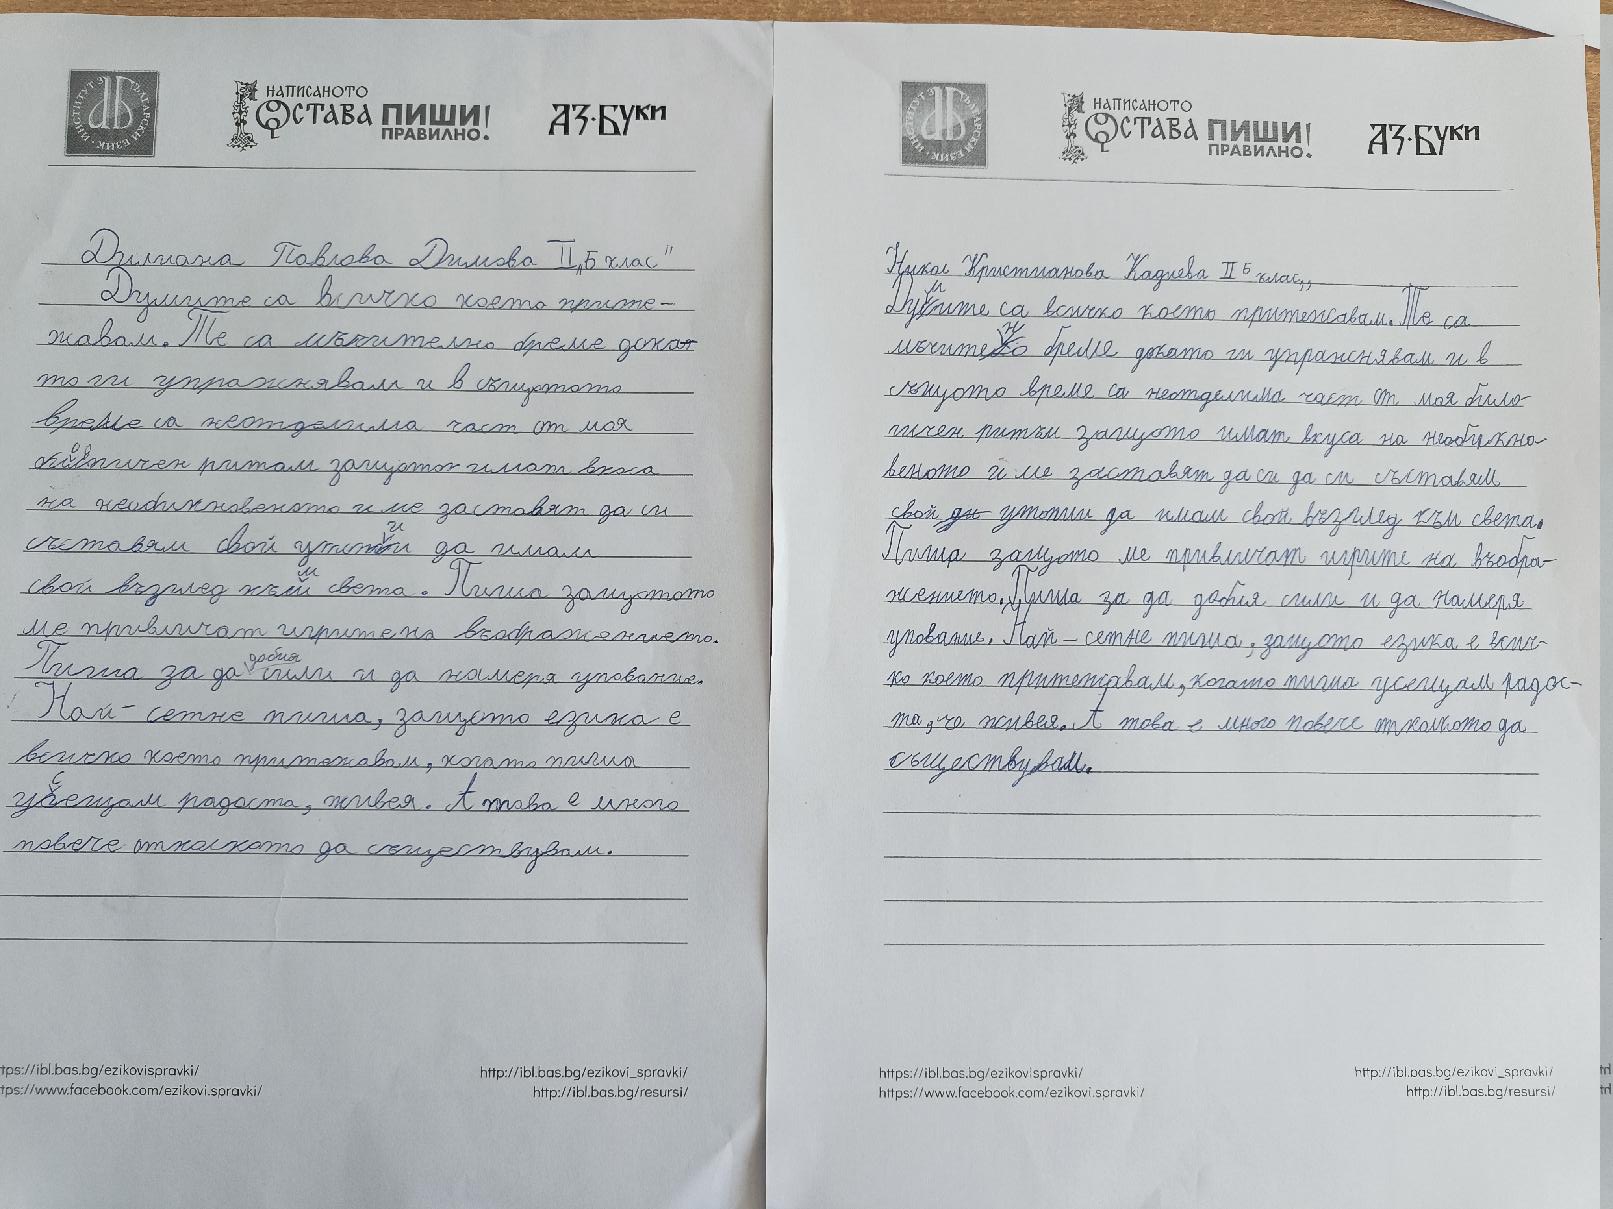 ИНСТИТУТ ЗА БЪЛГАРСКИ ЕЗИК
НАПИСАНОТО
ОСТАВА ПИШИ
ПРАВИЛНО!
АЗ·БУКИ
Дилиана Павлова Димова II „Б клас"
Думите са всичко което прите-
жавам. Те са мъчително бреме докат
то ги упражнявам и в същотото
време са неотделима част от моя
ритам защотот имат вкса
на необикновеното и ме заставят да си
съставям свой утопи да имам
свой възглед към света. Пиша защотото
ме привличат игрите на въображението.
Пиша за да добия сили и да намеря упование.
Най-сетне пиша, защото езика е
всичко което притежавам, когато пиша
усещам радоста, живея. А това е много
повече отколкото да съществувам.
https://ibl.bas.bg/ezikovispravki/
https://www.facebook.com/ezikovi.spravki/
http://ibl.bas.bg/ezikovi_spravki/
http://ibl.bas.bg/resursi/
ИНСТИТУТ ЗА БЪЛГАРСКИ ЕЗИК
НАПИСАНОТО
ОСТАВА ПИШИ
ПРАВИЛНО!
АЗ·БУКИ
Никол Кристианова Кадиева II Б клас„
Думите са всичко което притежавам. Те са
мъчително бреме докато ги упражнявам и в
същото време са неотделима част от моя било-
гичен ритъм защото имат вкуса на необикно-
веното и ме заставят да си да си съставям
свой утопии да имам свой възглед към света.
Пиша защото ме привличат игрите на въобра-
жението. Пиша за да добия сили и да намеря
упование. Най-сетне пиша, защото езика е всич-
ко което притежавам, когато пиша усещам радос-
та, че живея. А това е много повече отколкото да
съществувам.
https://ibl.bas.bg/ezikovispravki/
https://www.facebook.com/ezikovi.spravki/
http://ibl.bas.bg/ezikovi_spravki/
http://ibl.bas.bg/resursi/